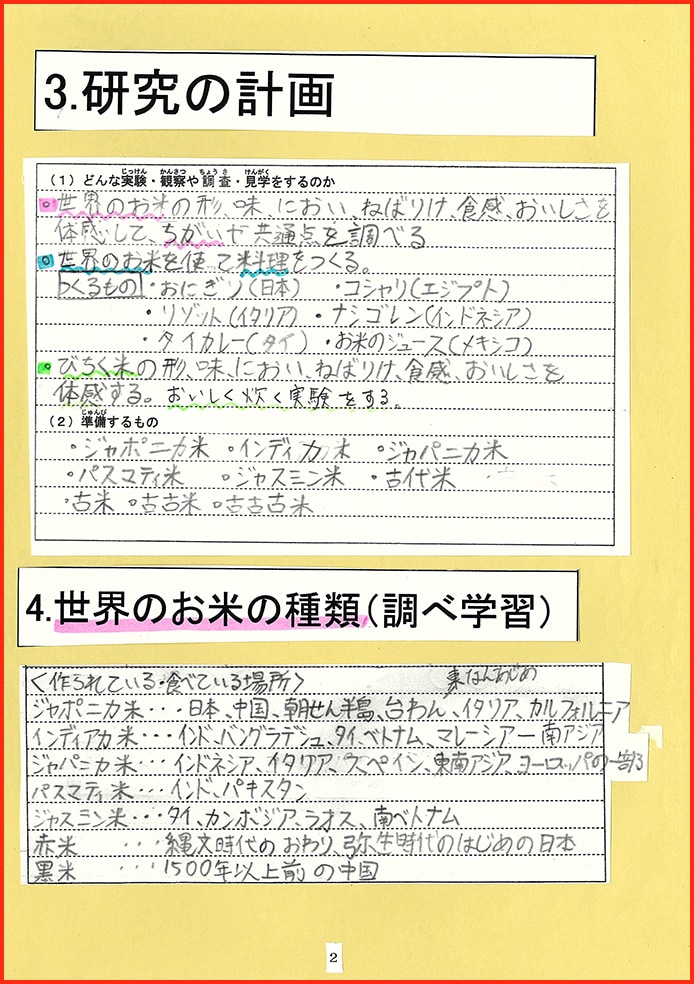 3.研究の計画
(1) どんな実験・観察や調査・見学をするのか
世界のお米の形、味、におい、ねばりけ、食感、おいしさを
体感して、ちがいや共通点を調べる
世界のお米を使って料理をつくる。
つくるもの ・おにぎり(日本) ・コシャリ(エジプト)
・リゾット(イタリア) ・ナシゴレン(インドネシア)
・タイカレー(タイ) ・お米のジュース(メキシコ)
びちく米の形、味、におい、ねばりけ、食感、おいしさを
体感する。おいしく炊く実験をする。
(2) 準備するもの
・ジャポニカ米 ・インディカ米 ・ジャパニカ米
・パスマティ米 ・ジャスミン米 ・古代米
・古米 ・古古米 ・古古古米
4.世界のお米の種類(調べ学習)
〈作られている・食べている場所〉
ジャポニカ米・・・日本、中国、朝せん半島、台わん、イタリア、カルフォルニア
インディアカ米・・・インド、バングラデシュ、タイ、ベトナム、マレーシアー南アジア
ジャパニカ米・・・インドネシア、イタリア、スペイン、東南アジア、ヨーロッパの一部
パスマティ米・・・インド、パキスタン
ジャスミン米・・・タイ、カンボジア、ラオス、南ベトナム
赤米 ・・・縄文時代のおわり、弥生時代のはじめの日本
黒米 ・・・1500年以上前の中国
2